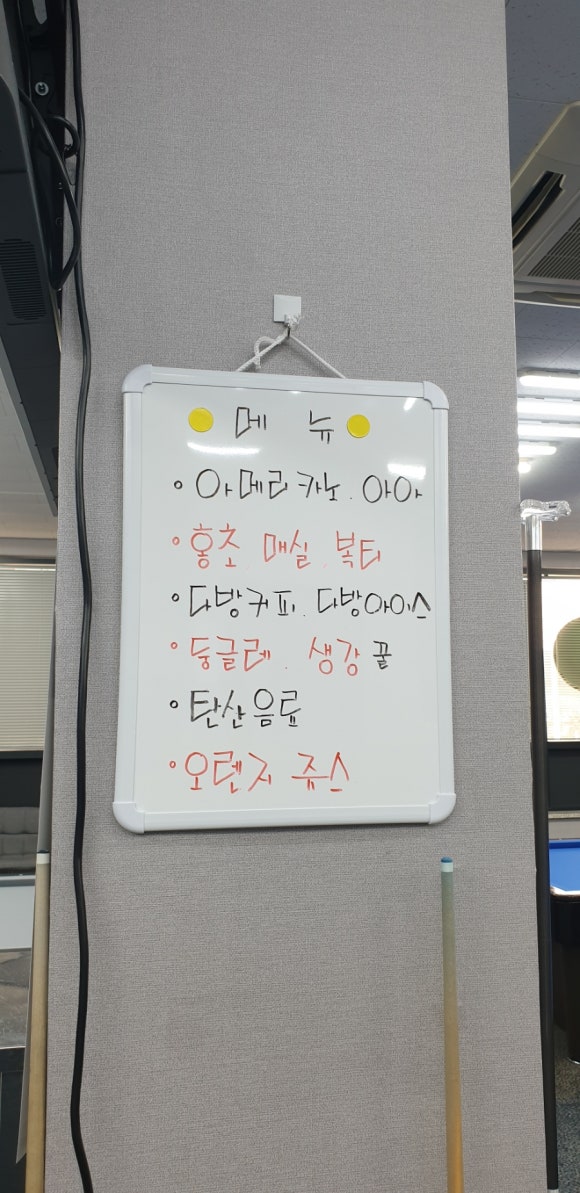 메 뉴
• 아메리카노. 아아
• 홍초. 매실. 복티
• 다방커피. 다방아이스
• 둥글레. 생강 꿀
• 탄산음료
• 오렌지 쥬스